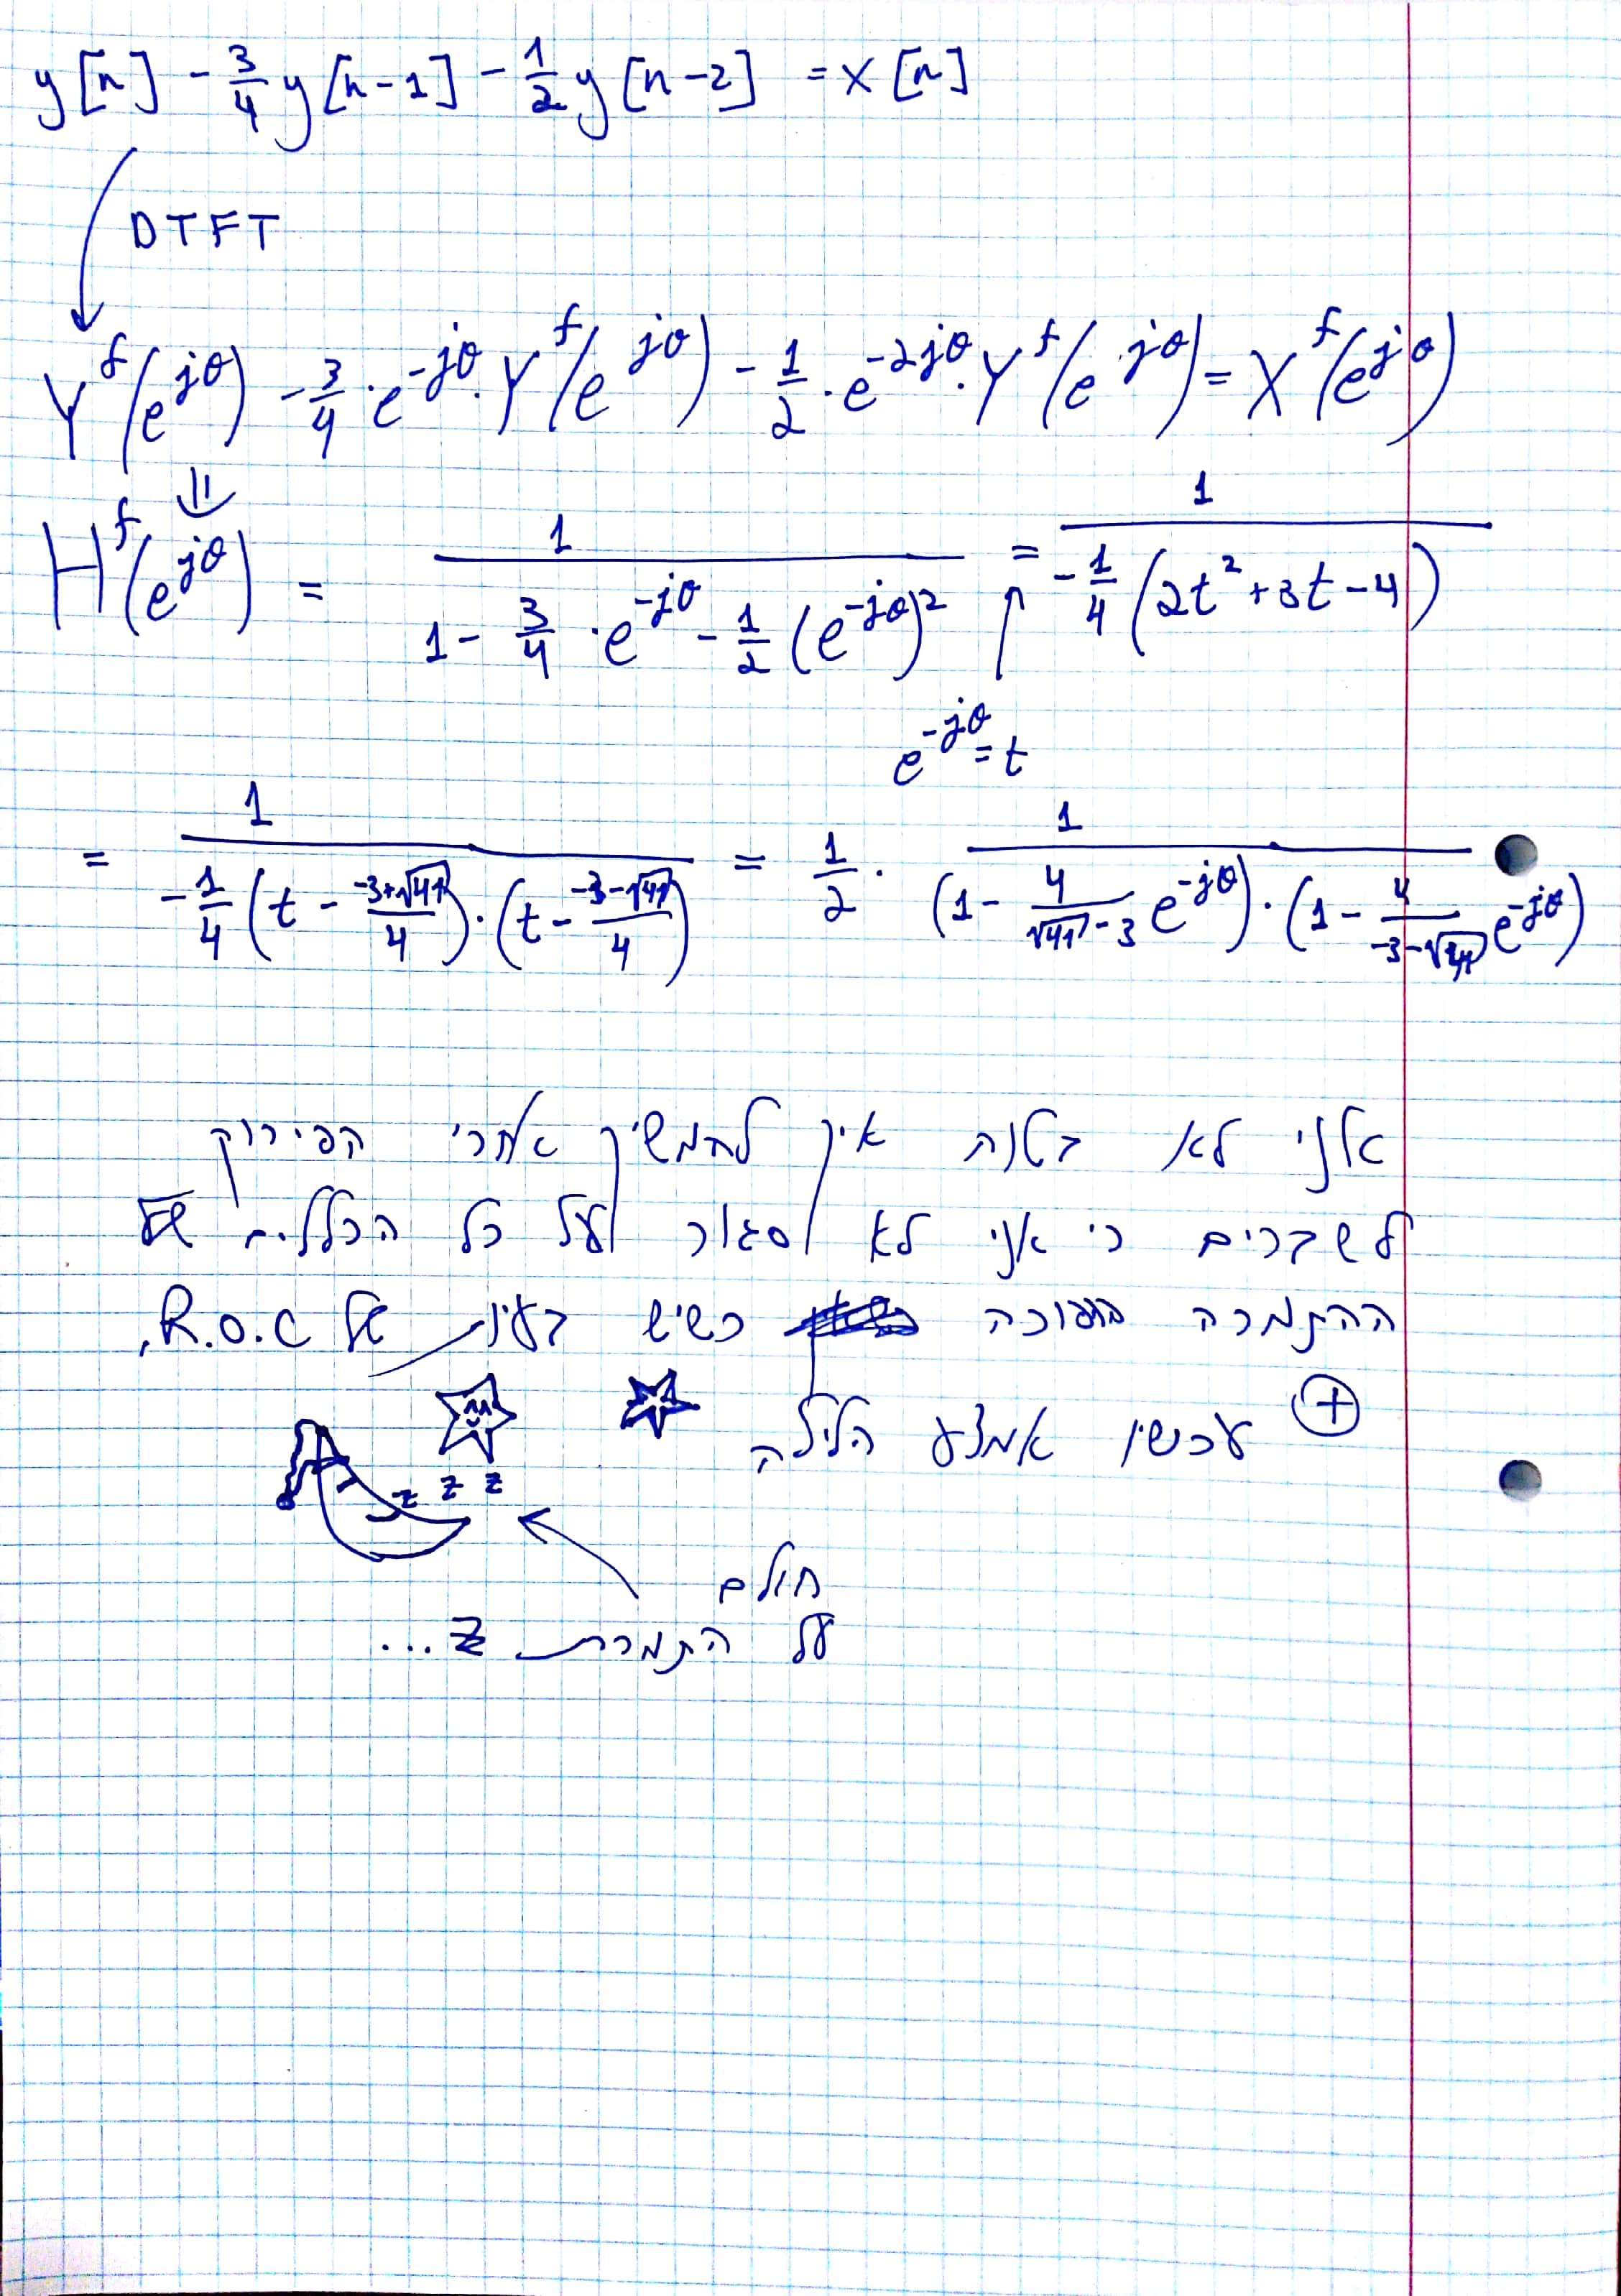 y[n] - 3/4 y[n-1] - 1/2 y[n-2] = x[n]
DTFT
Y^f(e^{jθ}) - 3/4 · e^{-jθ} · Y^f(e^{jθ}) - 1/2 · e^{-2jθ} · Y^f(e^{jθ}) = X^f(e^{jθ})
⇓
H^f(e^{jθ}) = 1 / (1 - 3/4 · e^{-jθ} - 1/2 (e^{-jθ})^2) = 1 / (-1/4 (2t^2 + 3t - 4))
e^{-jθ} = t
= 1 / (-1/4 (t - (-3+√41)/4) · (t - (-3-√41)/4)) = 1/2 · 1 / ((1 - 4/(√41-3) e^{-jθ}) · (1 - 4/(-3-√41) e^{-jθ}))
אני לא בטוח איך להמשיך אחרי הפירוק
לשברים כי אני לא סגור על כל הכללים של
ההתמרה הפוכה כשיש בעיות של R.O.C,
⊕ עכשיו אמצע הלילה
z z z
חולם
על התמרת z...